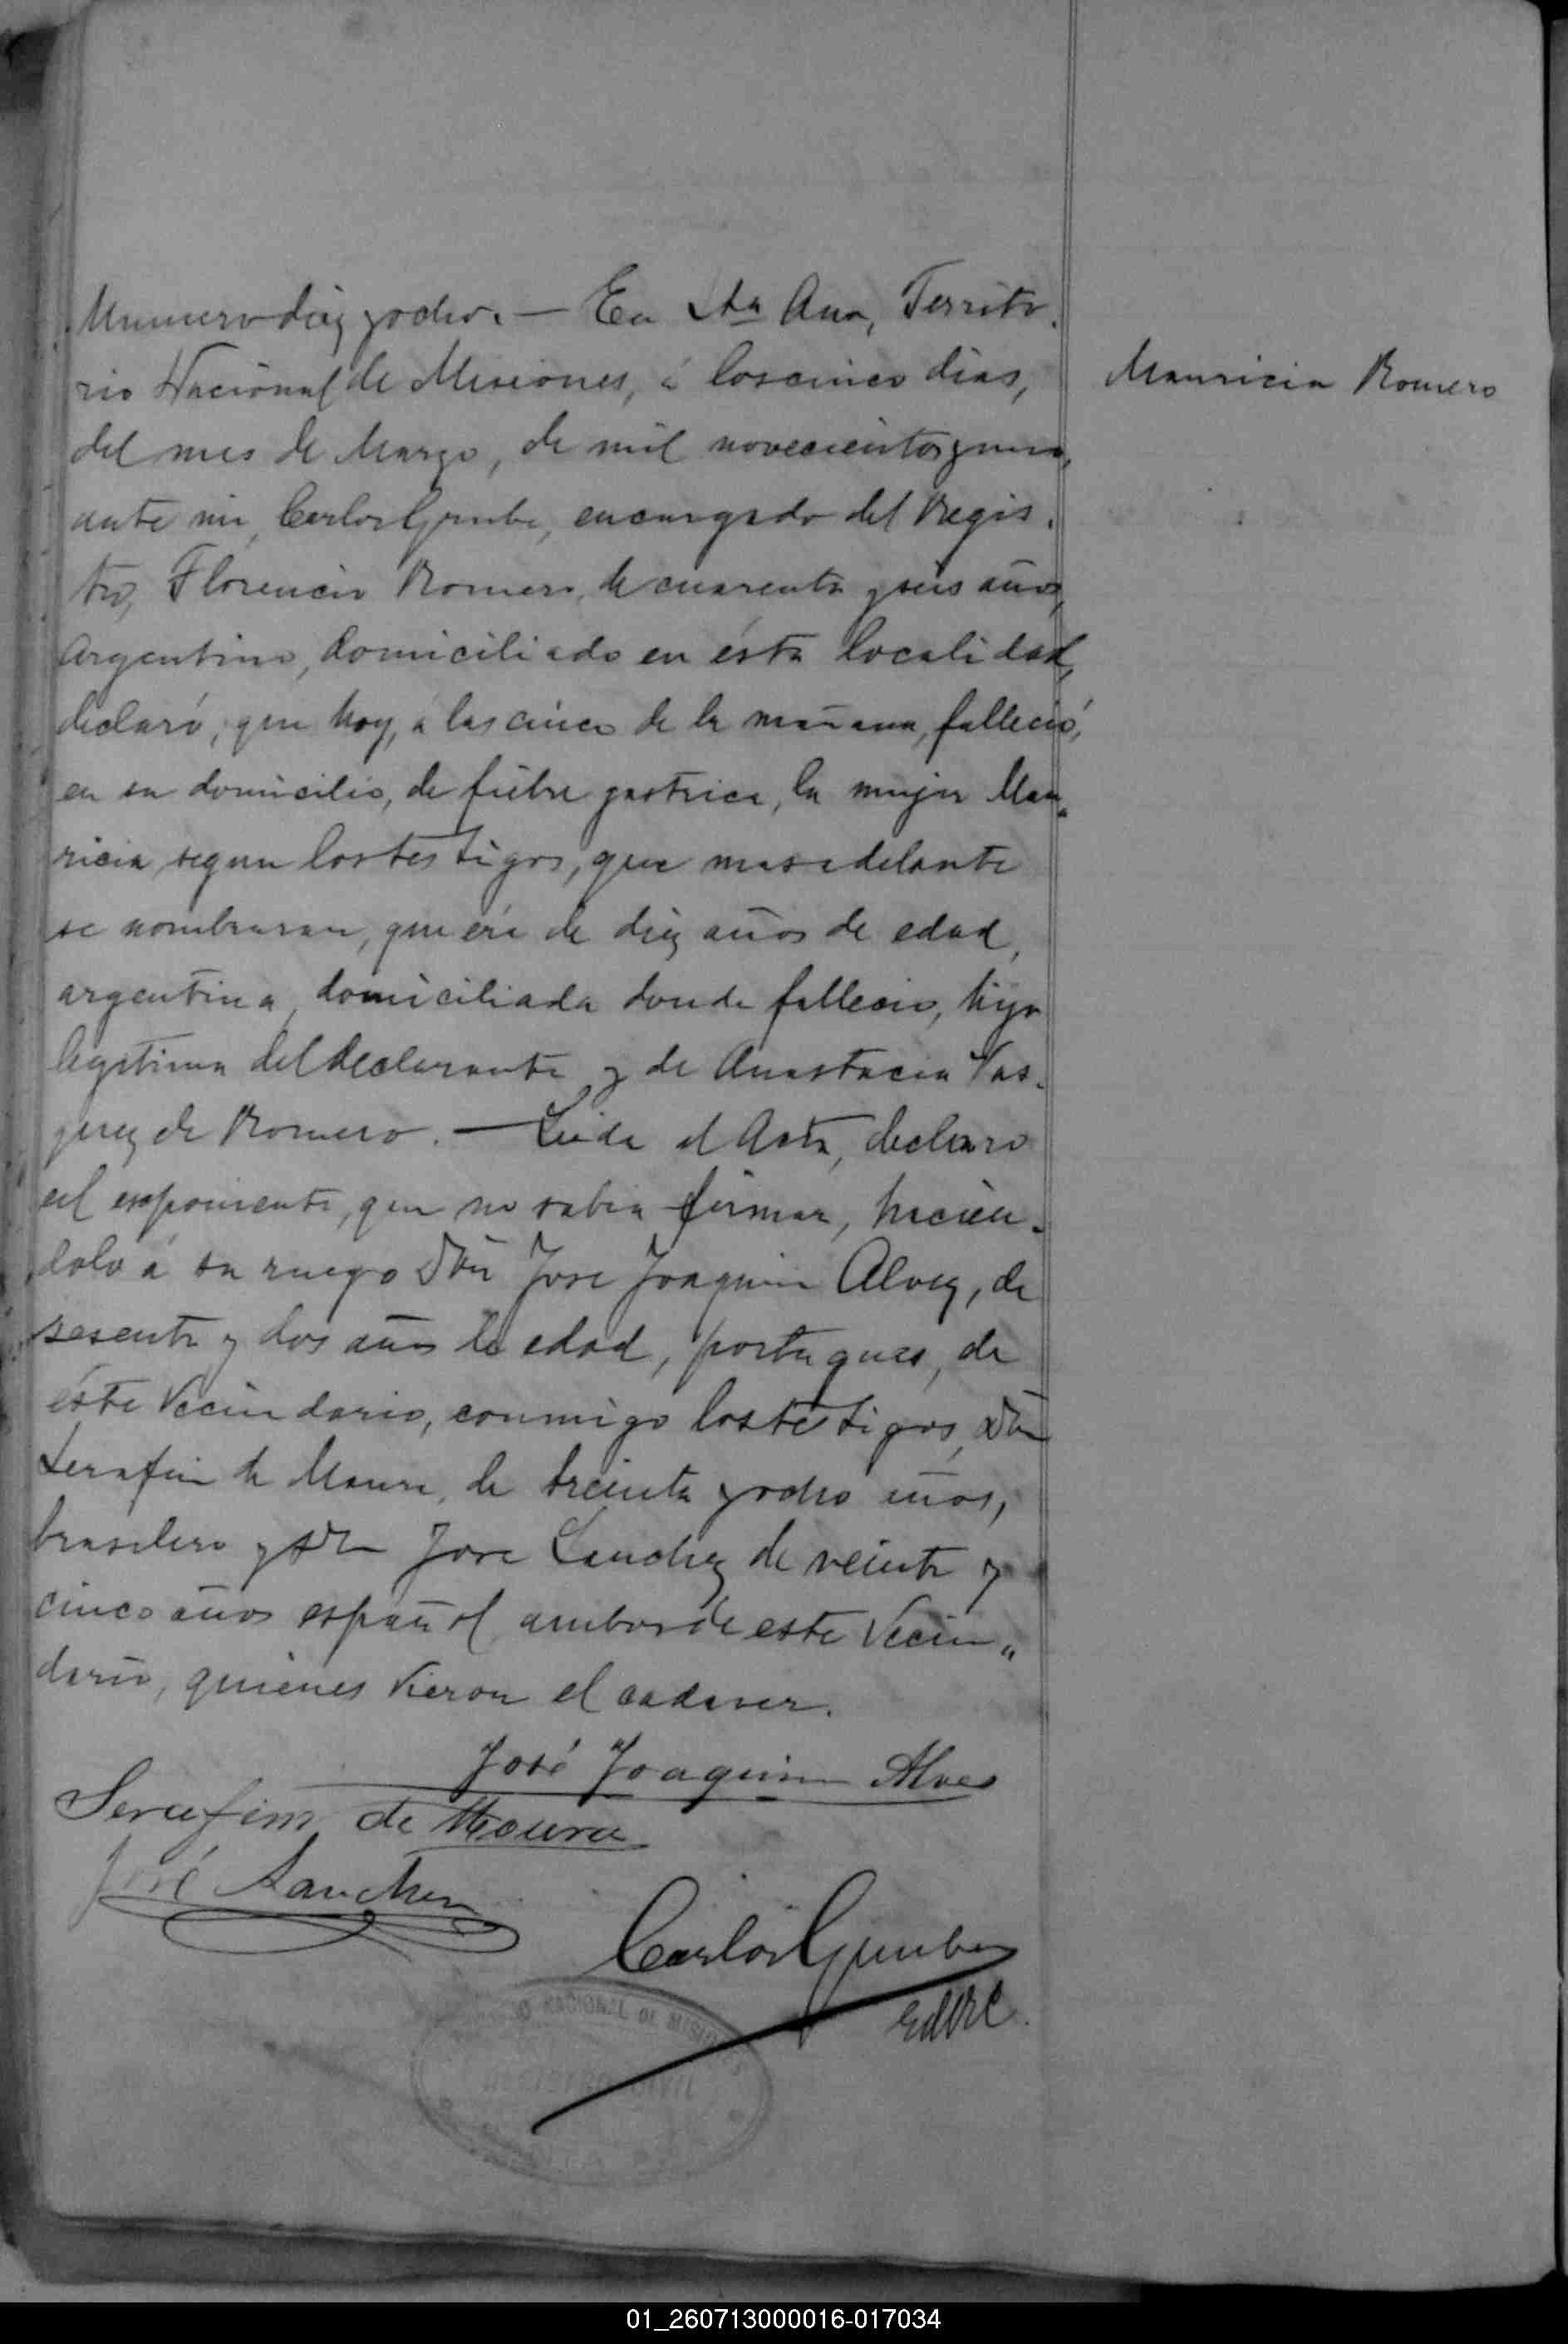 Numero diez y ocho. — En Sta Ana, Territo-
rio Nacional de Misiones, á los cinco dias,
Mauricia Romero
del mes de Marzo, de mil novecientos y
ante mi, Carlos encargado del Regis-
tro, Florencio Romero, de cuarenta y seis años,
argentino, domiciliado en ésta localidad,
declaró, que hoy, á las cinco de la mañana, falleció,
en su domicilio, de fiebre gastrica, la mujer Mau-
ricia, segun los testigos, que mas adelante
se nombraran, que era de diez años de edad,
argentina, domiciliada donde fallecio, hija
legitima del declarante y de Anastacia Vas-
quez de Romero. — Leida el Acta, declaro
el exponente, que no sabia firmar, hacien-
dolo á su ruego Dn Jose Joaquin Alvez, de
sesenta y dos años de edad, portugues, de
éste Vecindario, conmigo los testigos, Dn
Serafin de Moura, de treinta y ocho años,
brasilero y Dn Jose Sanchez de veinte y
cinco años español, ambos de este Vecin-
dario, quienes vieron el cadaver.
José Joaquim Alves
Serafim de Moura
José Sanchez
Carlos
EdelRC.
NACIONAL DE MISIONES
01_260713000016-017034